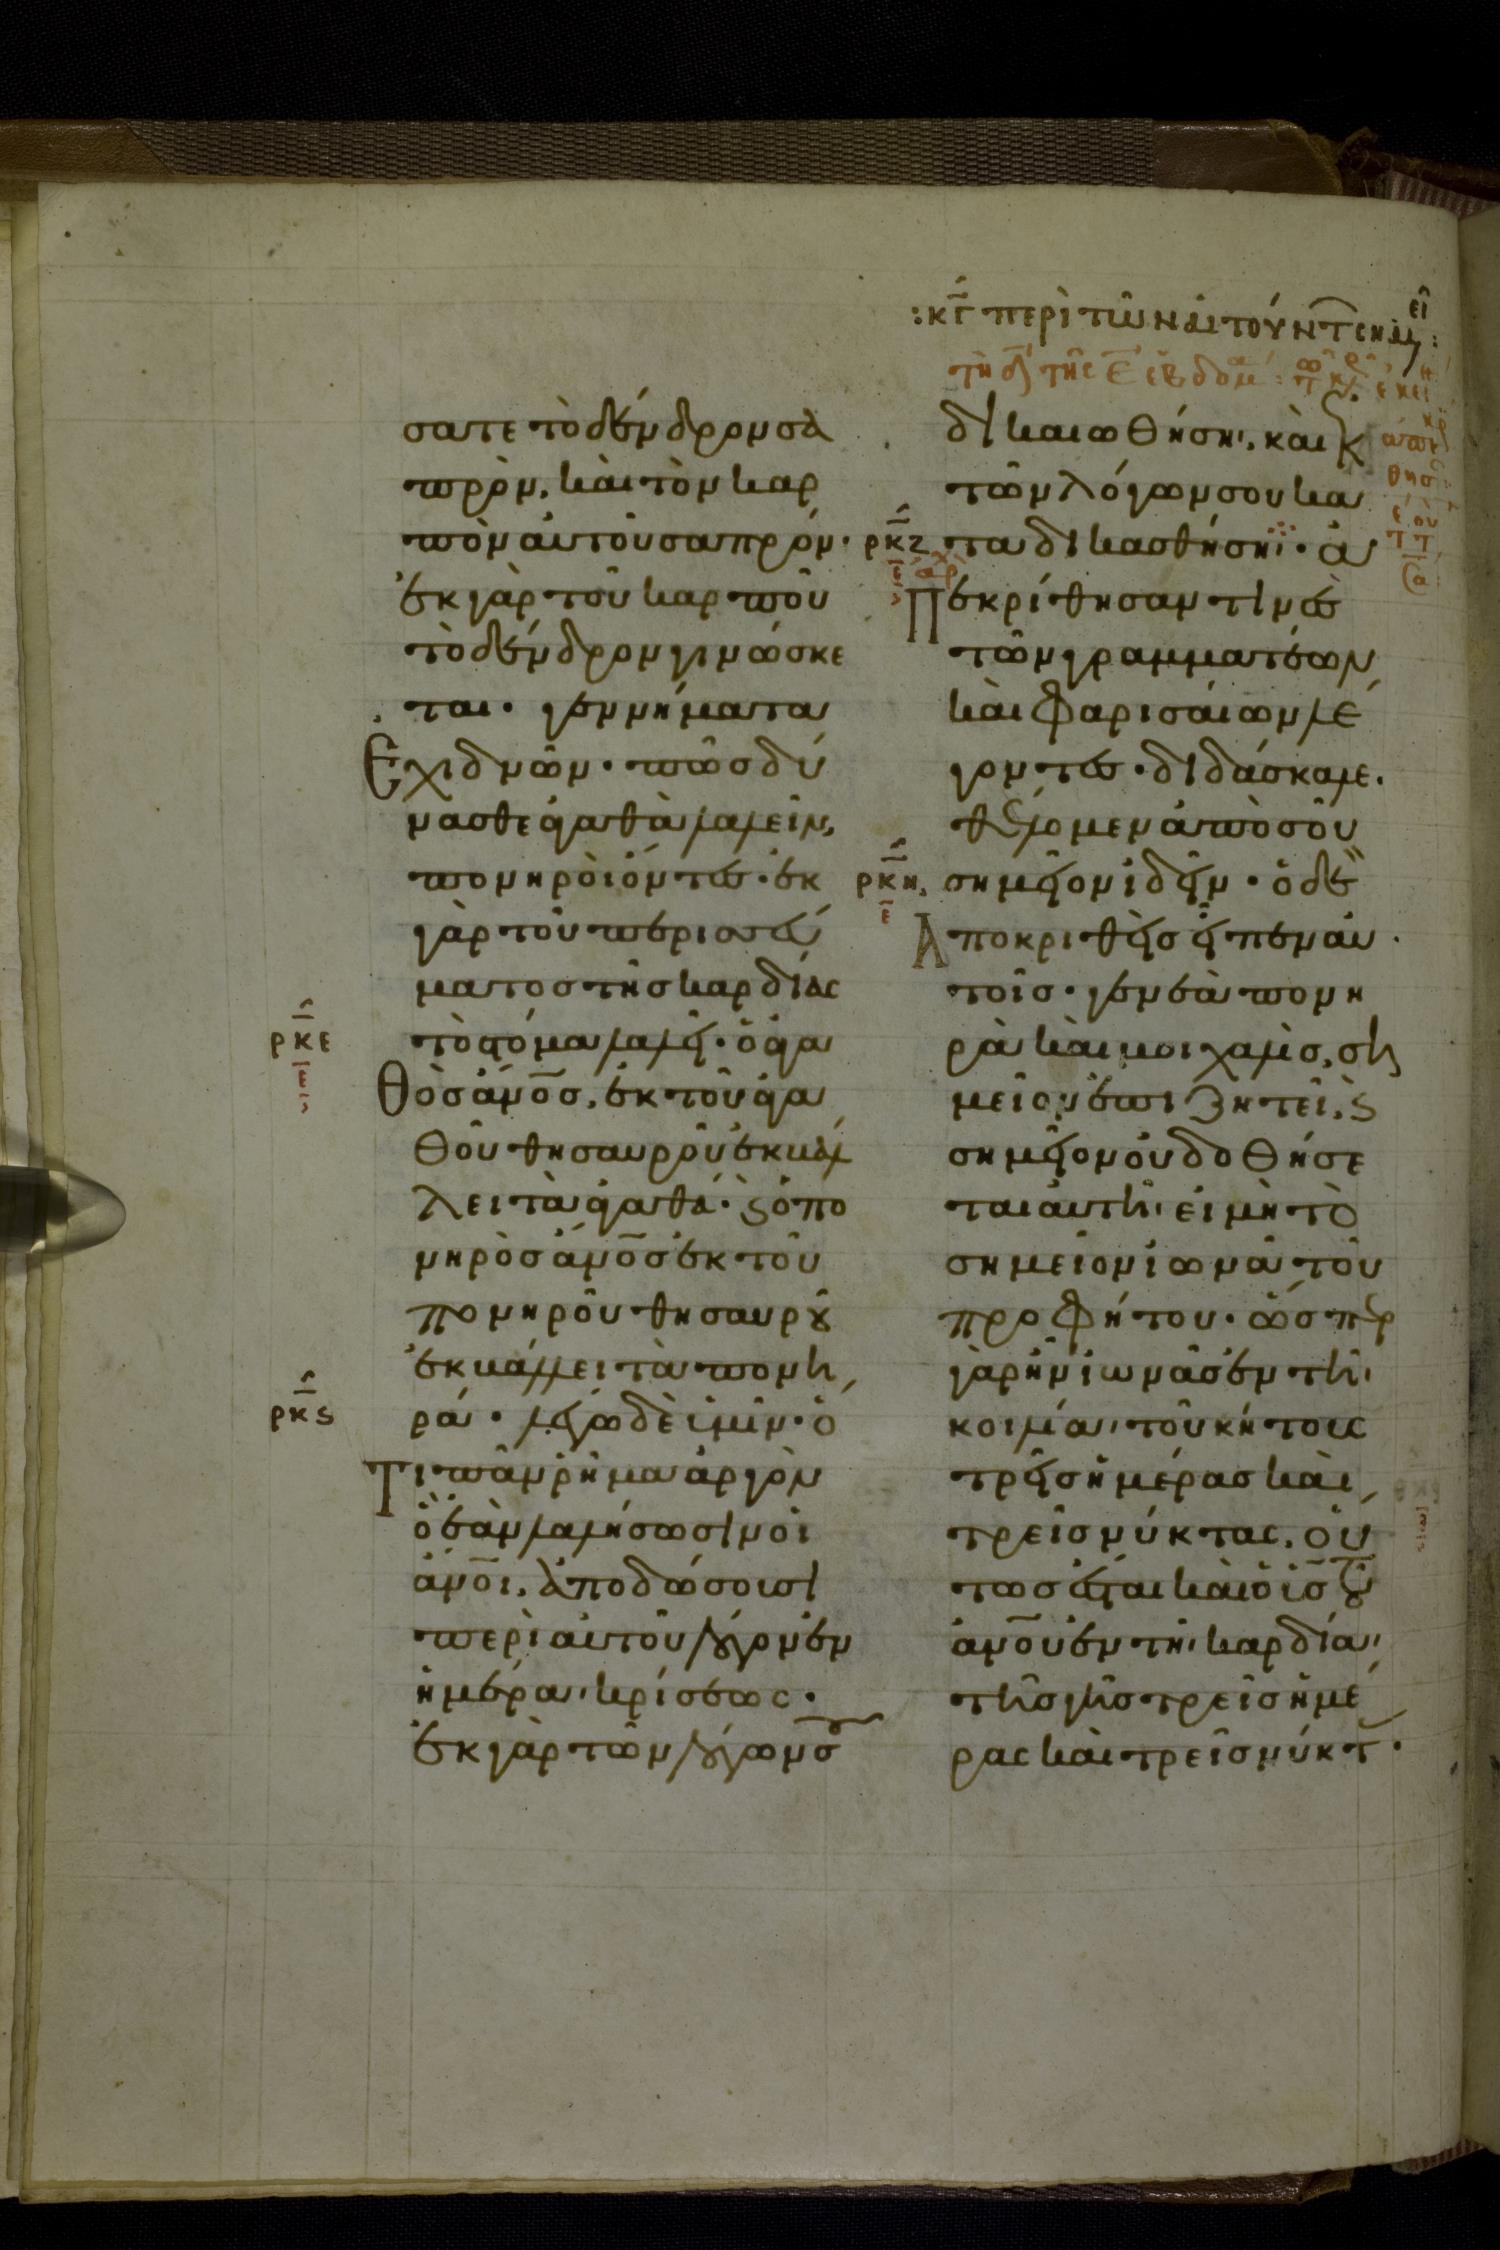 :κγ περὶ τῶν αἰτούντ σημεῖ:
τῆ δ τῆς ε ἑβδομ
σατε τὸ δένδρον σα
πρὸν, καὶ τὸν καρ
πὸν αὐτοῦ σαπρόν·
ἐκ γὰρ τοῦ καρποῦ
τὸ δένδρον γινώσκε
ται· γεννήματα
Ἐχιδνῶν· πῶς δύ
νασθε ἀγαθὰ λαλεῖν,
πονηροὶ ὄντες· ἐκ
γὰρ τοῦ περισσεύ
ματος τῆς καρδίας
ρκε
ε
τὸ στόμα λαλεῖ· ὁ ἀγα
Θὸς ἄνος, ἐκ τοῦ ἀγα
θοῦ θησαυροῦ ἐκβάλ
λει τὰ ἀγαθά· ϛ ὁ πο
νηρὸς ἄνος ἐκ τοῦ
πονηροῦ θησαυρȣ
ἐκβάλλει τὰ πονη
ρκϛ
ρά· λέγω δὲ ὑμῖν· ὅ
Τι πᾶν ῥῆμα ἀργὸν
ὃ ἐὰν λαλήσωσιν οἱ
ἄνοι, ἀποδώσουσι
περὶ αὐτοῦ λόγον ἐν
ἡμέρα κρίσεως·
ἐκ γὰρ τῶν λόγων σ
δικαιωθήση, καὶ ἐκ
τῶν λόγων σου κα
ρκζ
ε
ταδικασθήση· ἀ
Πεκρίθησαν τινὲς
τῶν γραμματέων
καὶ Φαρισαίων λέ
γοντες· διδάσκαλε·
θέλομεν ἀπὸ σοῦ
ρκη
ε
σημεῖον ἰδεῖν· ὁ δὲ
Ἀποκριθεὶς εἶπεν αὐ
τοῖς· γενεὰ πονη
ρὰ καὶ μοιχαλὶς, ση
μεῖον ἐπιζητεῖ, ϛ
σημεῖον οὐ δοθήσε
ται αὐτῆ· εἰ μὴ τὸ
σημεῖον ἰωνᾶ τοῦ
προφήτου· ὥσπερ
γὰρ ἦν ἰωνᾶς ἐν τῆ
κοιλία τοῦ κήτους
τρεῖς ἡμέρας καὶ
τρεῖς νύκτας, οὕ
τως ἔσται καὶ ὁ ὑς τȣ
ἀνου ἐν τῆ καρδία
τῆς γῆς τρεῖς ἡμέ
ρας καὶ τρεῖς νύκτ·